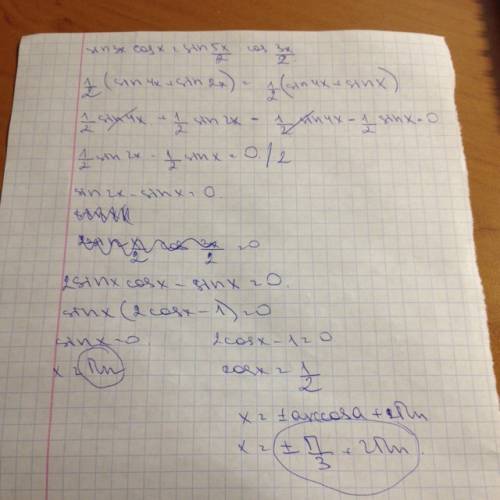 sin3x cosx = sin 5x/2 cos 3x/2
1/2 (sin4x + sin2x) = 1/2 (sin4x + sinx)
1/2 sin4x + 1/2 sin2x - 1/2 sin4x - 1/2 sinx = 0
1/2 sin2x - 1/2 sinx = 0 /2
sin2x - sinx = 0.
= 0
2sinx cosx - sinx = 0.
sinx (2cosx - 1) = 0
sinx = 0 2cosx - 1 = 0
x = Пn cosx = 1/2
x = ± arccos a + 2Пn
x = ± П/3 + 2Пn